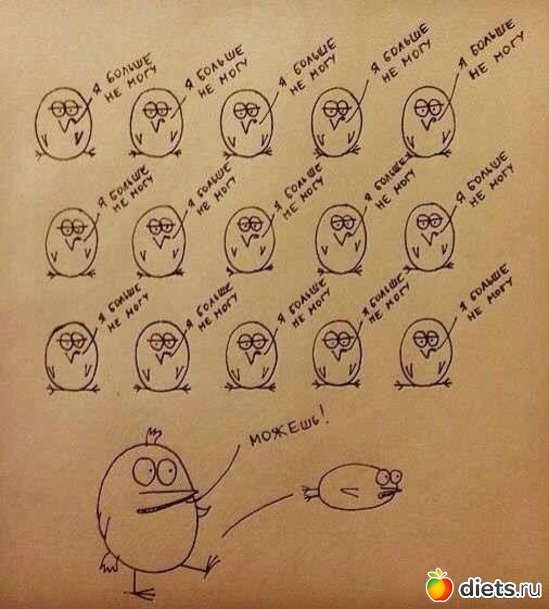 Я БОЛЬШЕ
НЕ МОГУ
Я БОЛЬШЕ
НЕ МОГУ
Я БОЛЬШЕ
НЕ МОГУ
Я БОЛЬШЕ
НЕ МОГУ
Я БОЛЬШЕ
НЕ МОГУ
Я БОЛЬШЕ
НЕ МОГУ
Я БОЛЬШЕ
НЕ МОГУ
Я БОЛЬШЕ
НЕ МОГУ
Я БОЛЬШЕ
НЕ МОГУ
Я БОЛЬШЕ
НЕ МОГУ
Я БОЛЬШЕ
НЕ МОГУ
Я БОЛЬШЕ
НЕ МОГУ
Я БОЛЬШЕ
НЕ МОГУ
Я БОЛЬШЕ
НЕ МОГУ
Я БОЛЬШЕ
НЕ МОГУ
МОЖЕШЬ!
diets.ru